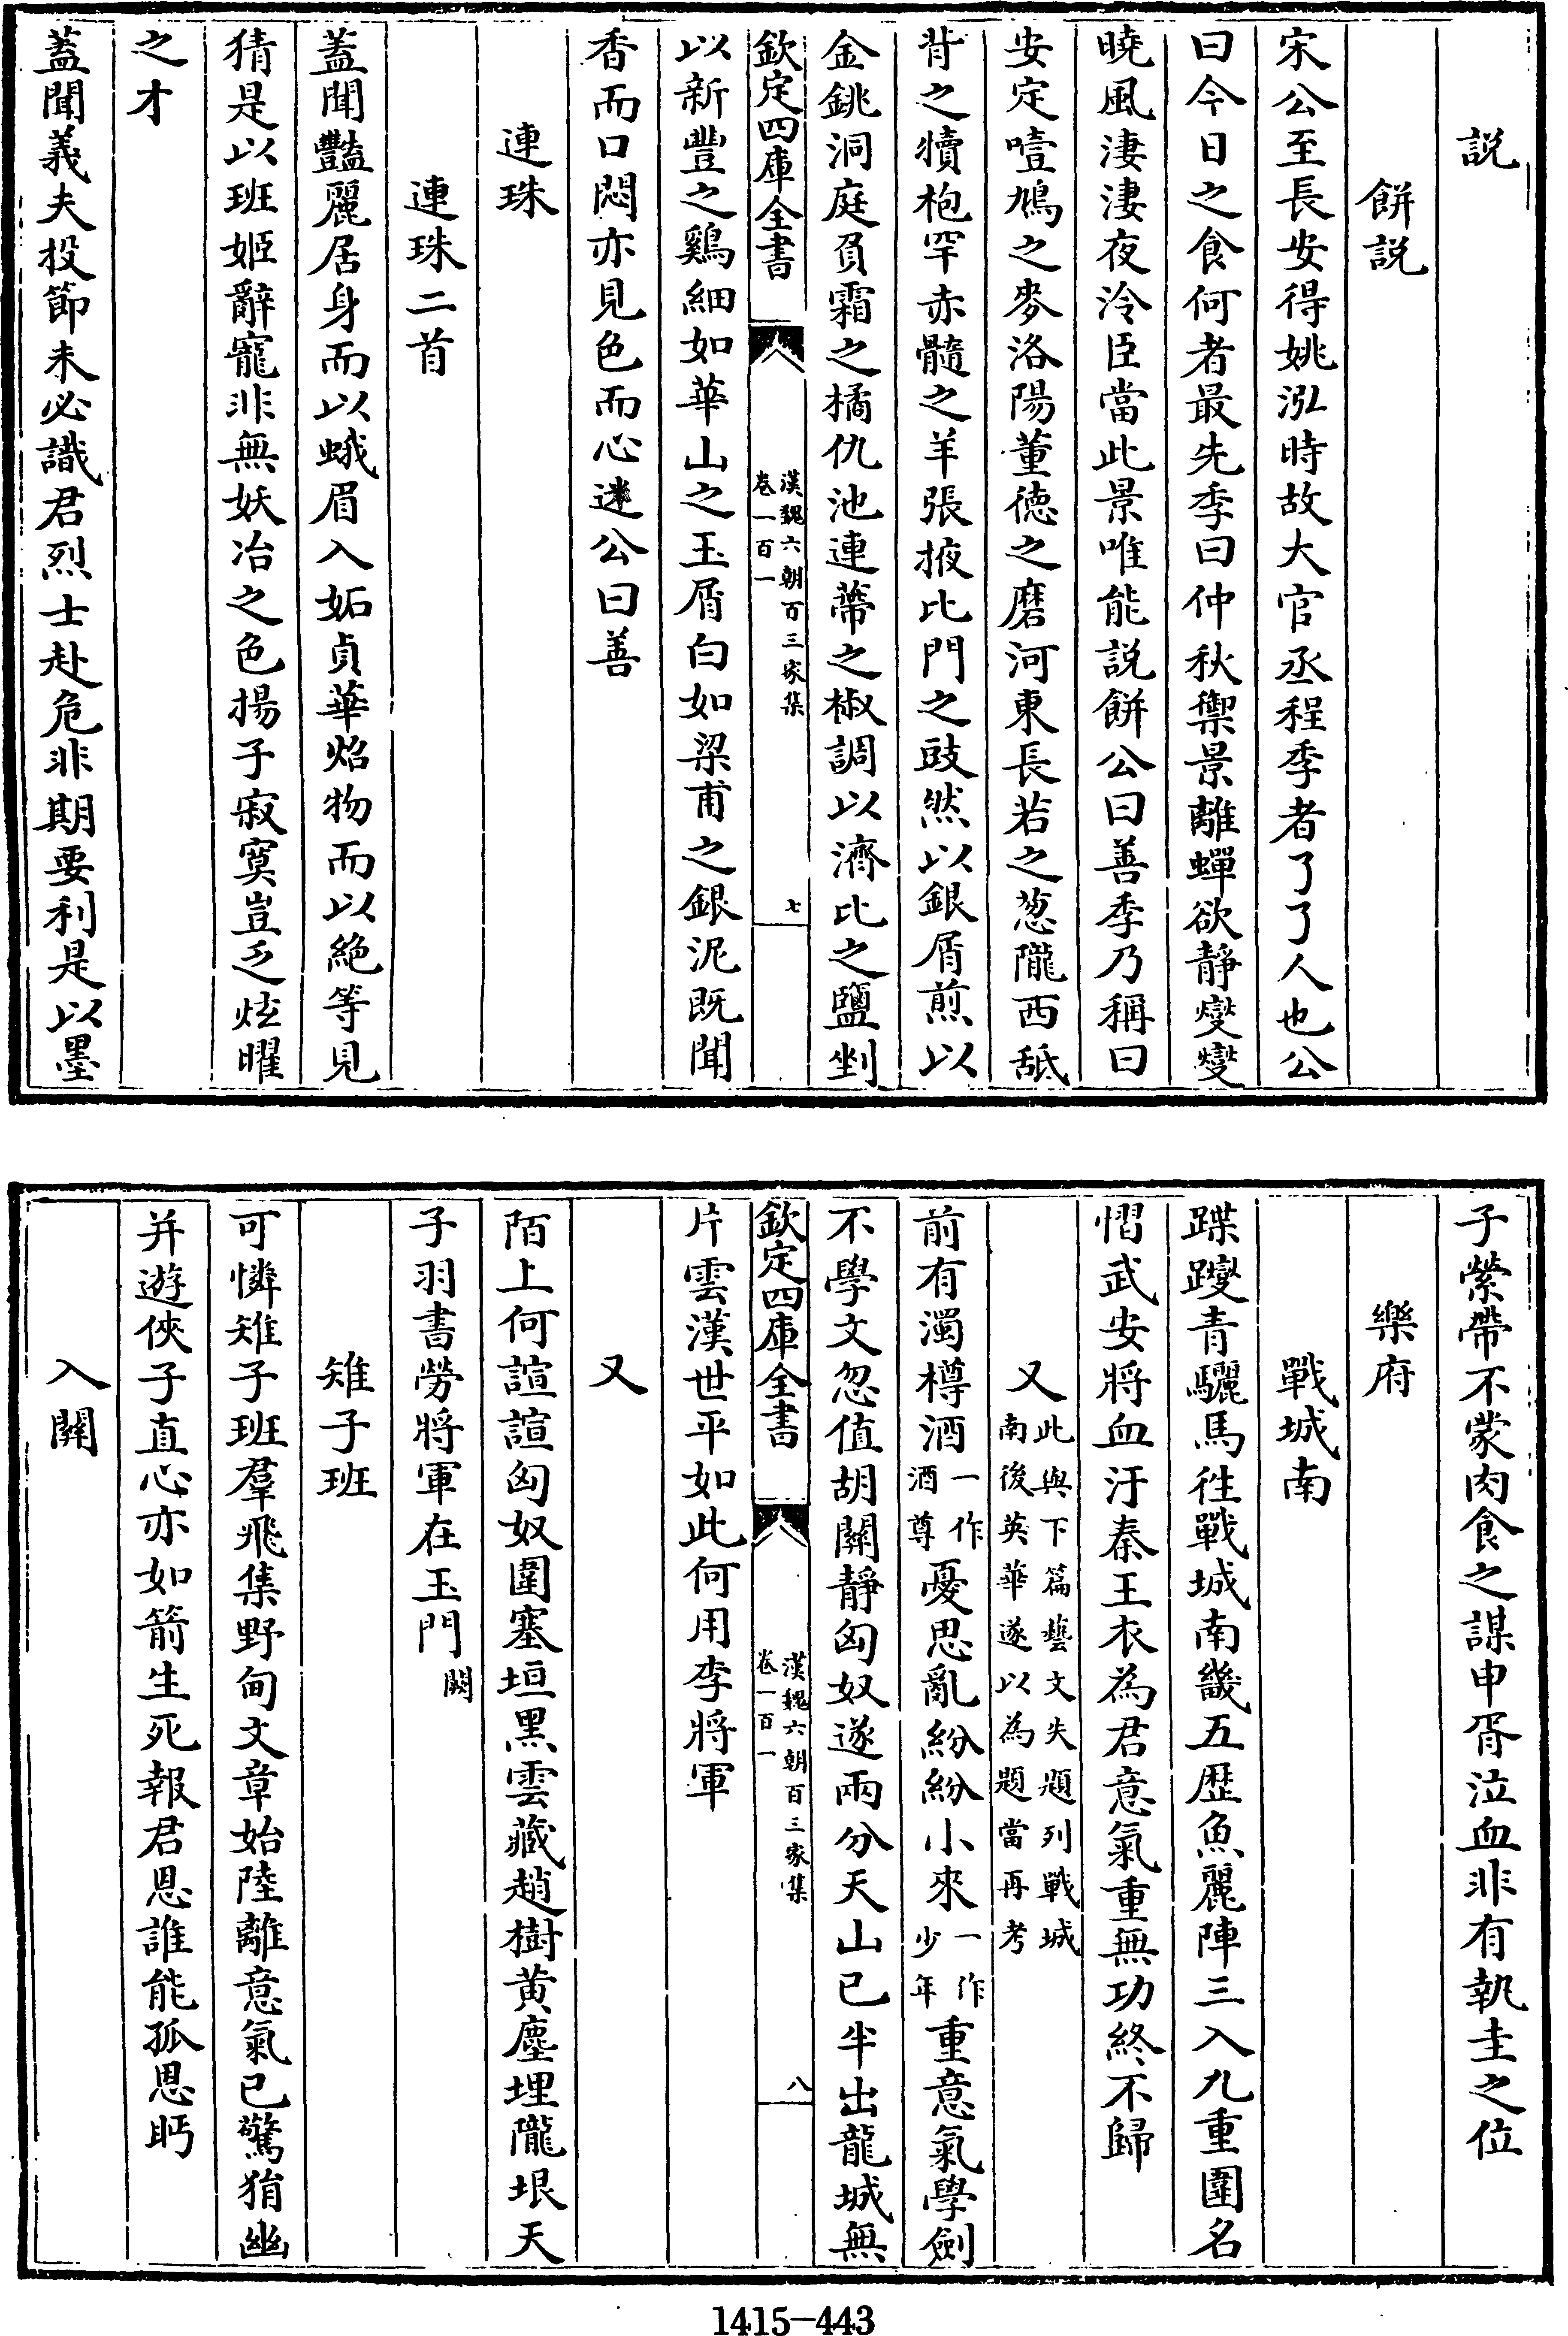 説
餅説
宋公至長安得姚泓時故大官丞程季者了了人也公
曰今日之食何者最先季曰仲秋禦景離蟬欲靜燮燮
曉風淒淒夜冷臣當此景唯能説餅公曰善季乃稱曰
安定噎鳩之麥洛陽董德之磨河東長若之葱隴西舐
背之犢枹罕赤髓之羊張掖北門之豉然以銀屑煎以
金銚洞庭負霜之橘仇池連蔕之椒調以濟北之鹽剉
欽定四庫全書
漢魏六朝百三家集
卷一百一
七
以新豐之鷄細如華山之玉屑白如梁甫之銀泥既聞
香而口悶亦見色而心迷公曰善
連珠
連珠二首
蓋聞豔麗居身而以蛾眉入妬貞華炤物而以絶等見
猜是以班姬辭寵非無妖冶之色揚子寂寞豈乏炫曜
之才
蓋聞義夫投節未必識君烈士赴危非期要利是以墨
子縈帶不蒙肉食之謀申胥泣血非有執圭之位
樂府
戰城南
蹀躞青驪馬徃戰城南畿五歴魚麗陣三入九重圍名
慴武安將血汙秦王衣為君意氣重無功終不歸
又此與下篇藝文失題列戰城
南後英華遂以為題當再考
前有濁樽酒一作酒尊憂思亂紛紛小來一作少年重意氣學劍
不學文忽值胡關靜匈奴遂兩分天山已半出龍城無
欽定四庫全書
漢魏六朝百三家集
卷一百一
八
片雲漢世平如此何用李將軍
又
陌上何諠諠匈奴圍塞垣黑雲藏趙樹黄塵埋隴垠天
子羽書勞將軍在玉門闕
雉子班
可憐雉子班羣飛集野甸文章始陸離意氣已驚狷幽
并遊俠子直心亦如箭生死報君恩誰能孤恩眄
入關
1415-443